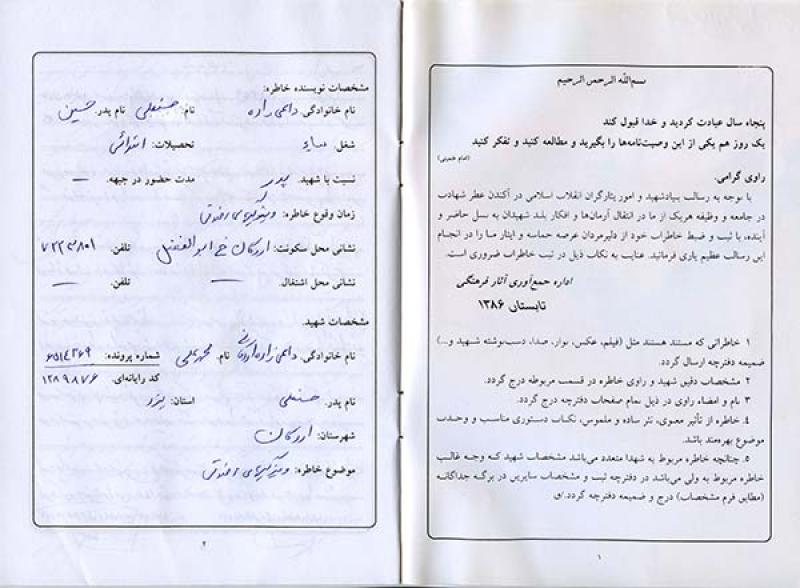 بسم‌الله الرحمن الرحیم
پنجاه سال عبادت کردید و خدا قبول کند
یک روز هم یکی از این وصیت‌نامه‌ها را بگیرید و مطالعه کنید و تفکر کنید
(امام خمینی)
راوی گرامی:
با توجه به رسالت بنیادشهید و امور ایثارگران انقلاب اسلامی در آکندن عطر شهادت
در جامعه و وظیفه هریک از ما در انتقال آرمان‌ها و افکار بلند شهیدان به نسل حاضر و
آینده، با ثبت و ضبط خاطرات خود از دلیرمردان عرصه حماسه و ایثار ما را در انجام
این رسالت عظیم یاری فرمائید. عنایت به نکات ذیل در ثبت خاطرات ضروری است.
اداره جمع‌آوری آثار فرهنگی
تابستان ۱۳۸۶
۱ خاطراتی که مستند هستند مثل (فیلم، عکس، نوار، صدا، دست‌نوشته شهید و...)
ضمیمه دفترچه ارسال گردد.
۲ مشخصات دقیق شهید و راوی خاطره در قسمت مربوطه درج گردد.
۳ نام و امضاء راوی در ذیل تمام صفحات دفترچه درج گردد.
۴. خاطره از تأثیر معنوی، نثر ساده و ملموس، نکات دستوری مناسب و وحدت
موضوع بهره‌مند باشد.
۵. چنانچه خاطره مربوط به شهدا متعدد می‌باشد مشخصات شهید که وجه غالب
خاطره مربوط به ولی می‌باشد در دفترچه ثبت و مشخصات سایرین در برگه جداگانه
(مطابق فرم مشخصات) درج و ضمیمه دفترچه گردد./ق
۱
مشخصات نویسنده خاطره:
نام خانوادگی: دائمی زاده نام: حسنعلی نام پدر: حسین
شغل: تحصیلات: ابتدائی
نسبت با شهید: پدر مدت حضور در جبهه: —
زمان وقوع خاطره: ویژگیهای اخلاقی
نشانی محل سکونت: اردکان خ ابوالفضل تلفن: ۷۲۲۳۸۰۱
نشانی محل اشتغال: — تلفن: —
مشخصات شهید:
نام خانوادگی: دائمی زاده اردکانی نام: محمدعلی شماره پرونده: ۶۵۱۴۲۶۹
کد رایانه‌ای: ۱۲۸۹۸۷۶
نام پدر: حسنعلی استان: یزد
شهرستان: اردکان
موضوع خاطره: ویژگیهای اخلاقی
۲